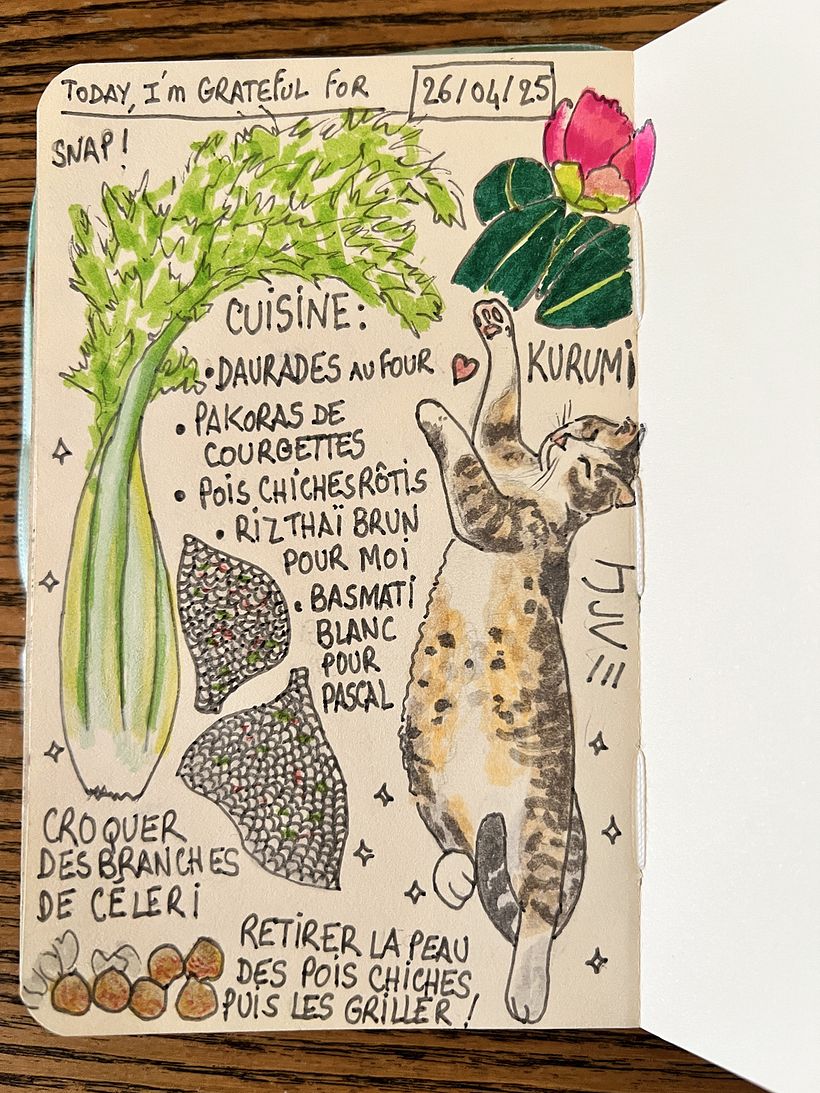 TODAY, I'm GRATEFUL FOR
26/04/25
SNAP!
CUISINE:
• DAURADES AU FOUR
KURUMI
• PAKORAS DE
COURGETTES
• POIS CHICHES RÔTIS
• RIZ THAÏ BRUN
POUR MOI
• BASMATI
BLANC
POUR
PASCAL
CROQUER
DES BRANCHES
DE CÉLERI
RETIRER LA PEAU
DES POIS CHICHES
PUIS LES GRILLER !